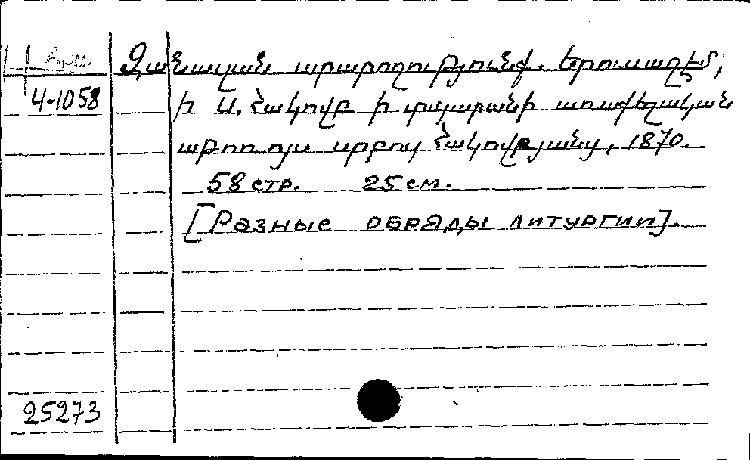 Арм.
Զանազան արարողութիւնք. Երուսաղէմ,
4-1058
ի Ս. Յակովբ ի տպարանի առաքելական
աթոռոյս սրբոյ Յակովբեանց, 1870.
58 стр. 25 см.
[Разные обряды литургии].
25273